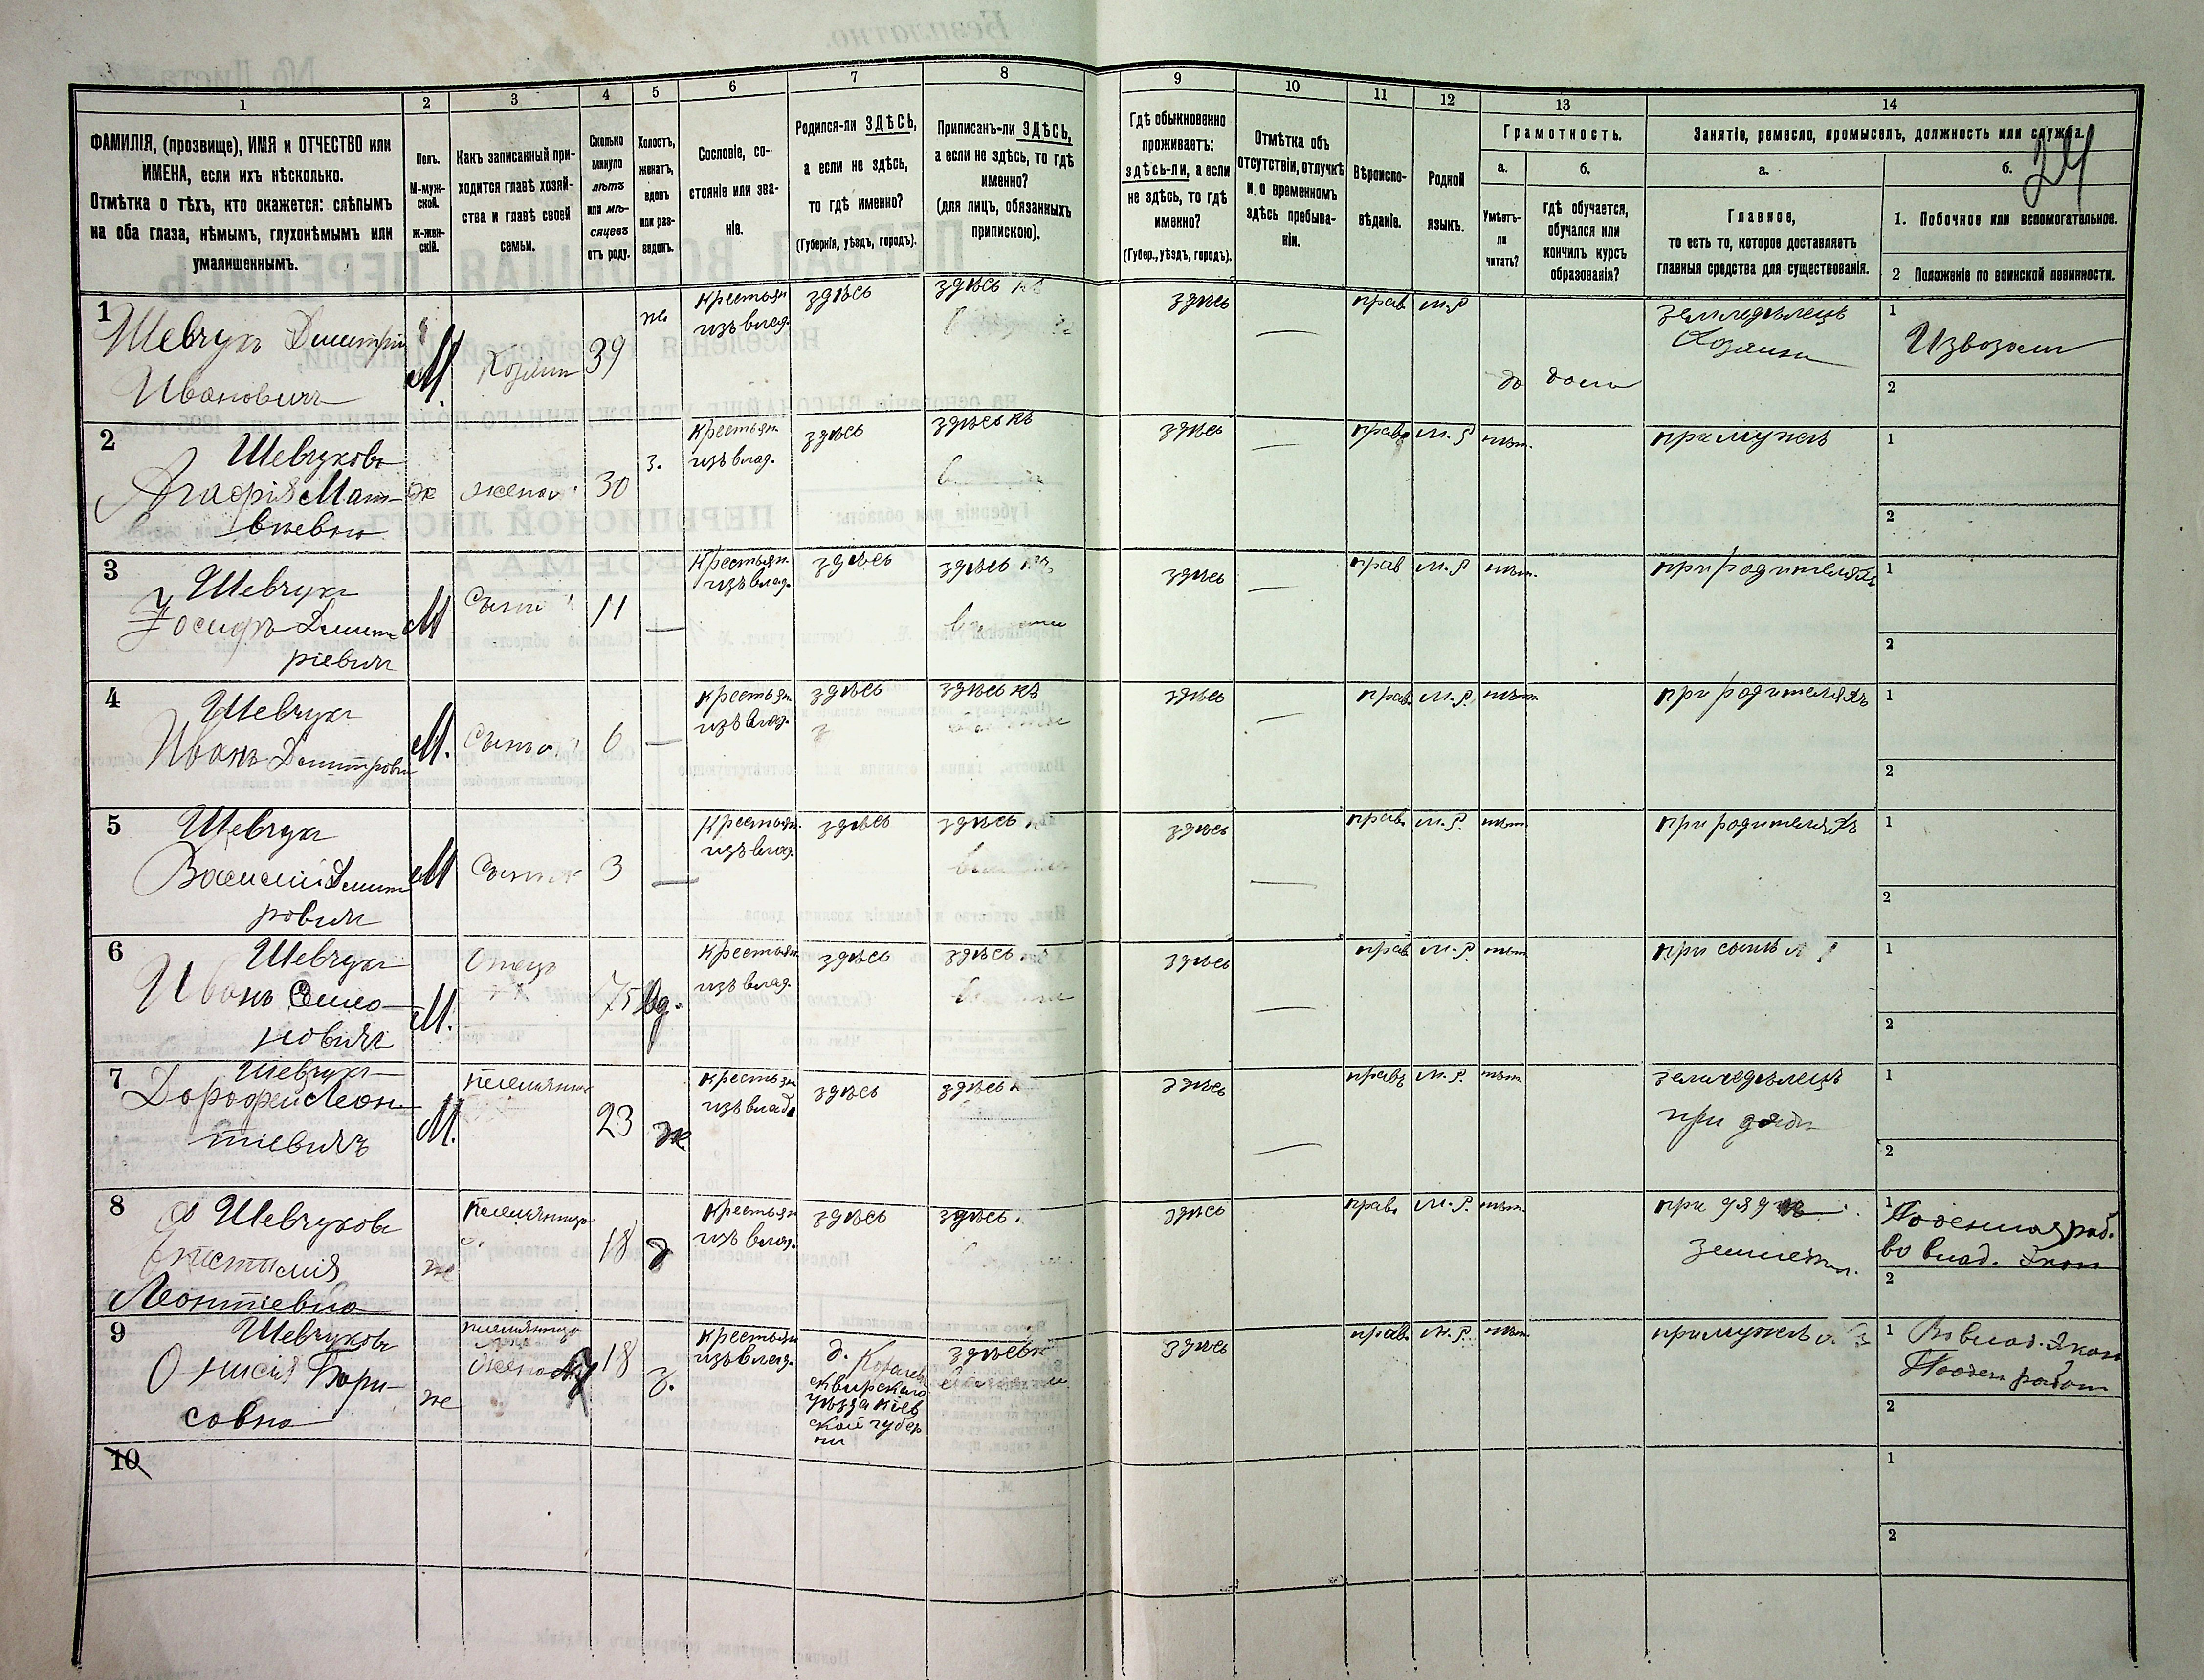 1
2
3
4
5
6
7
8
9
10
11
12
13
14
ФАМИЛІЯ, (прозвище), ИМЯ и ОТЧЕСТВО или
ИМЕНА, если ихъ нѣсколько.
Отмѣтка о тѣхъ, кто окажется: слѣпымъ
на оба глаза, нѣмымъ, глухонѣмымъ или
умалишеннымъ.
Полъ.
М-муж-
ской.
Ж-жен-
скій.
Какъ записанный при-
ходится главѣ хозяй-
ства и главѣ своей
семьи.
Сколько
минуло
лѣтъ
или мѣ-
сяцевъ
отъ роду.
Холостъ,
женатъ,
вдовъ
или раз-
веденъ.
Сословіе, со-
стояніе или зва-
ніе.
Родился-ли ЗДѢСЬ,
а если не здѣсь,
то гдѣ именно?
(Губернія, уѣздъ, городъ).
Приписанъ-ли ЗДѢСЬ,
а если не здѣсь, то гдѣ
именно?
(для лицъ, обязанныхъ
припискою).
Гдѣ обыкновенно
проживаетъ:
здѣсь-ли, а если
не здѣсь, то гдѣ
именно?
(Губер., уѣздъ, городъ).
Отмѣтка объ
отсутствіи, отлучкѣ
и о временномъ
здѣсь пребыва-
ніи.
Вѣроиспо-
вѣданіе.
Родной
языкъ.
Грамотность.
а.
Умѣетъ-
ли
читать?
б.
Гдѣ обучается,
обучался или
кончилъ курсъ
образованія?
Занятіе, ремесло, промыселъ, должность или служба.
а.
Главное,
то есть то, которое доставляетъ
главныя средства для существованія.
б.
24
1. Побочное или вспомогательное.
2 Положеніе по воинской повинности.
1
Шевчукъ Дмитрій
Ивановичъ
М.
Хозяинъ
39
ж.
крестьян.
изъ влад.
здѣсь
здѣсь
здѣсь
—
прав.
м.р.
да
дома
земледѣлецъ
Хозяинъ
1
Извозомъ
2
2
Шевчукова
Агафія Мат-
вѣевна
ж
жена
30
з.
Крестьян.
изъ влад.
здѣсь
здѣсь
здѣсь
—
прав.
м.р.
нѣт.
при мужѣ
1
2
3
Шевчукъ
Іосифъ Дмит-
ріевичъ
М
Сынъ
11
—
Крестьян.
изъ влад.
здѣсь
здѣсь
здѣсь
—
прав
м.р
нѣт.
при родителяхъ
1
2
4
Шевчукъ
Иванъ Дмитровичъ
М.
Сынъ
6
—
Крестьян.
изъ влад.
здѣсь
здѣсь
здѣсь
—
прав.
м.р.
нѣт.
при родителяхъ
1
2
5
Шевчукъ
Василій Дмит-
ровичъ
М
Сынъ
3
—
Крестьян.
изъ влад.
здѣсь
здѣсь
здѣсь
—
прав.
м.р.
нѣт.
при родителяхъ
1
2
6
Шевчукъ
Иванъ Симо-
новичъ
М.
Отецъ
75
вд.
крестьян.
изъ влад.
здѣсь
здѣсь
здѣсь
—
прав
м.р.
нѣт.
при сынѣ
1
2
7
Шевчукъ
Дорофей Леон-
тіевичъ
М.
племянникъ
23
ж
крестьян
изъ влад.
здѣсь
здѣсь
здѣсь
—
прав.
м.р.
нѣт.
земледѣлецъ
при дядѣ
1
2
8
Шевчукова
Леонтіевна
ж
племянница
18
д
крестьян
изъ влад.
здѣсь
здѣсь
здѣсь
прав.
м.р.
нѣт.
при дядѣ
1
Поденная раб.
во влад. Экон
2
9
Шевчукова
Онисія Бори-
совна
ж
жена
18
з.
крестьян
изъ влад.
д.
Сквирскаго
уѣзда Кіев
ской губер
ни
здѣсь
здѣсь
прав.
м.р.
нѣт.
при мужѣ
1
Въ влад. Экон
Поден работ
2
10
1
2